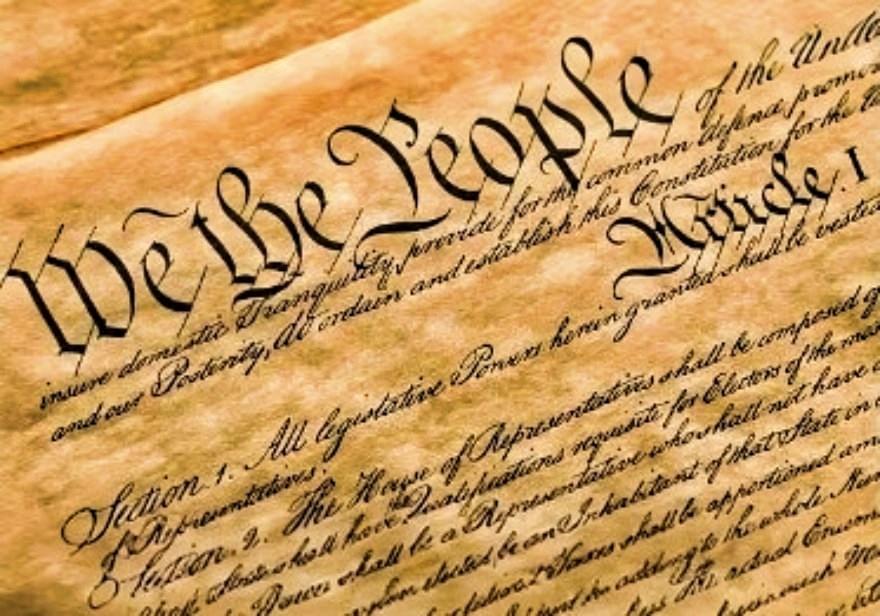 We the People of the Unite
insure domestic Tranquility, provide for the common defence, promo
and our Posterity, do ordain and establish this Constitution for the
Article. I
Section. 1. All legislative Powers herein granted shall be vested
of Representatives.
Section. 2. The House of Representatives shall be composed of
State shall have the Qualifications requisite for Electors of the mos
No Person shall be a Representative who shall not have a
when elected, be an Inhabitant of that State in
Taxes shall be apportioned am
adding to the whole Num
actual Enum